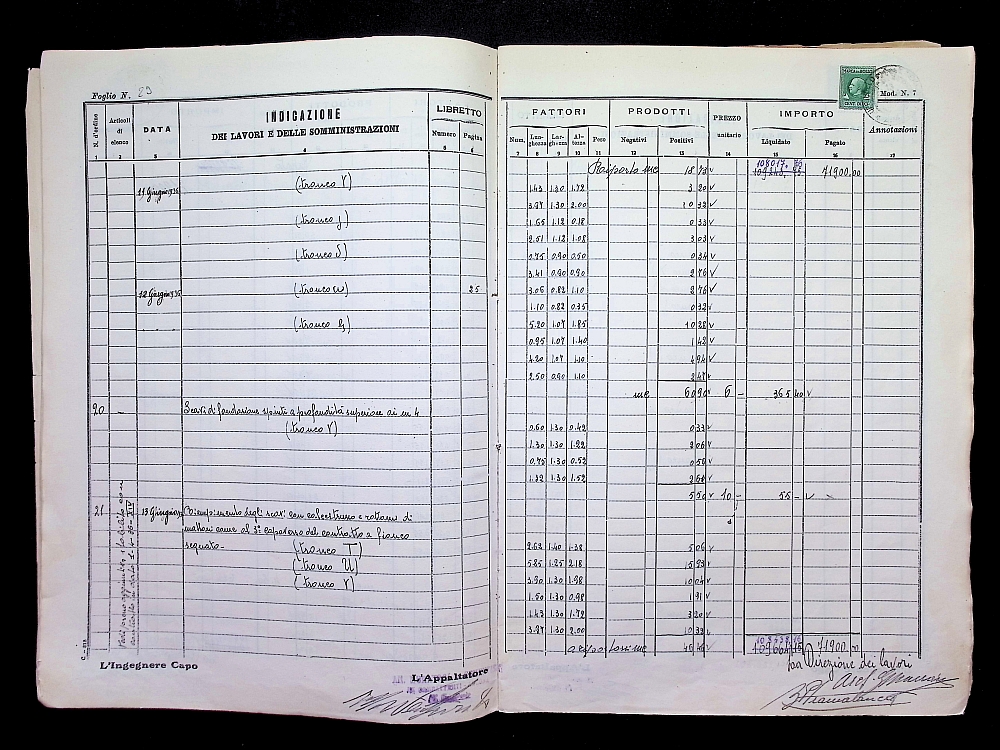 Foglio N. 29
INDICAZIONE
DEI LAVORI E DELLE SOMMINISTRAZIONI
N. d'ordine
Articoli di elenco
DATA
LIBRETTO
Numero Pagina
1 2 3 4 5 6
11 Giugno 936 (tronco V)
(tronco J)
(tronco S)
12 Giugno 936 (tronco W) 25
(tronco G)
20 - Scavi di fondazione spinti a profondità superiore ai m 4
(tronco V)
21 13 Giugno Riempimento degli scavi con calcestruzzo e rottami di
mattoni come al 3° capoverso del contratto a fianco
segnato -
(tronco T)
(tronco U)
(tronco V)
L'Ingegnere Capo
L'Appaltatore
MARCA DA BOLLO
CENT. DIECI
Mod. N. 7
FATTORI PRODOTTI PREZZO unitario IMPORTO Annotazioni
Num. Lunghezza Larghezza Altezza Peso Negativi Positivi Liquidato Pagato
7 8 9 10 11 12 13 14 15 16 17
Riporto mc 18 73 71900.00
1.43 1.30 1.72 3 20
3.97 1.30 2.00 10 32
1.65 1.12 0.18 0 33
2.51 1.12 1.08 3 03
0.75 0.90 0.50 0 34
3.41 0.90 0.90 2 76
3.06 0.82 1.10 2 76
1.10 0.82 0.35 0 32
5.20 1.07 1.85 10 28
0.95 1.07 1.40 1 42
4.20 1.07 1.10 4 94
2.50 0.90 1.10 2 47
mc 60 90 6 - 365 40
0.60 1.30 0.42 0 33
1.30 1.30 1.22 2 06
0.75 1.30 0.52 0 50
1.32 1.30 1.52 2 60
5 50 10 - 55 -
2.62 1.40 1.38 5 06
5.25 1.25 2.18 15 93
3.90 1.30 1.98 10 04
1.50 1.30 0.98 1 91
1.43 1.30 1.72 3 20
3.97 1.30 2.00 10 33
a riportarsi mc 46 46 71900.00
La Direzione dei lavori